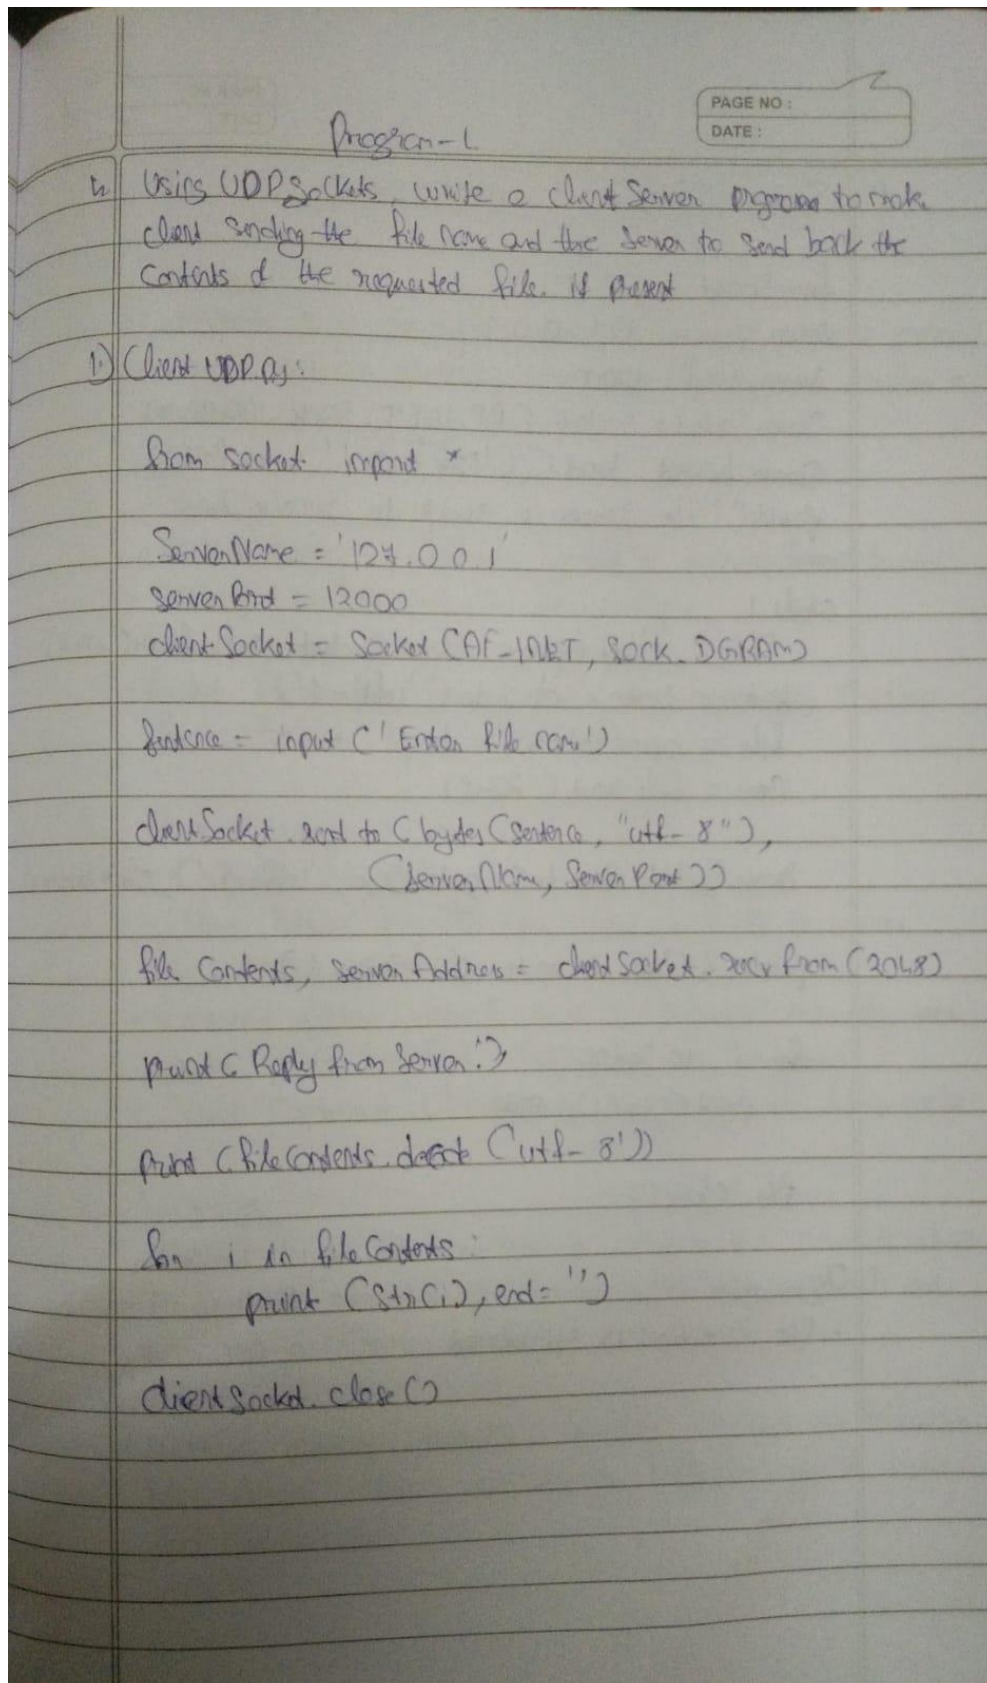 PAGE NO :
DATE :
Program - 1
Using UDP Sockets, write a client Server program to make
client sending the file name and the Server to send back the
contents of the requested file. if present
1) Client UDP.py:
from socket import *
ServerName = '127.0.0.1'
serverPort = 12000
clientSocket = Socket (AF_INET, SOCK_DGRAM)
Sentence = input ('Enter file name')
clientSocket.send to (bytes (Sentence, "utf-8"),
(ServerName, ServerPort))
file Contents, serverAddress = clientSocket.recv from (2048)
print ( Reply from Server:')
print (fileContents.decode ('utf-8'))
for i in fileContents:
print (str(i), end = '')
clientSocket.close()